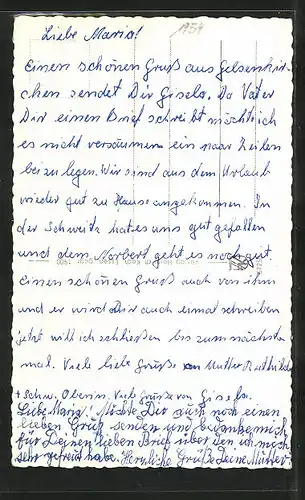 Liebe Maria! 1954
einen schönen Gruß aus Gelsenkir-
chen sendet Dir Gisela. Da Vater
Dir einen Brief schreibt möchte ich
es nicht versäumen ein paar Zeilen
bei zu legen. Wir sind aus dem Urlaub
wieder gut zu Hause angekommen. In
der Schweitz hat es uns gut gefallen
und dem Norbert geht es noch gut
einen schönen Gruß auch von ihm
und er wird Dir auch einmal schreiben
jetzt will ich schließen bis zum nächsten
mal. Viele liebe Grüße Mutter
+ Schw. Oberin. Viele Grüße von Gisela.
Liebe! Möchte Dir auch noch einen
lieben Gruß senden und bedanke mich
für Deinen lieben Brief über den ich mich
sehr gefreut habe. Herzliche Grüße Deine Mutter.